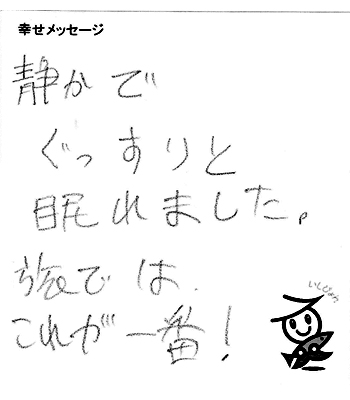 幸せメッセージ
静かで
ぐっすりと
眠れました。
旅では
これが一番！